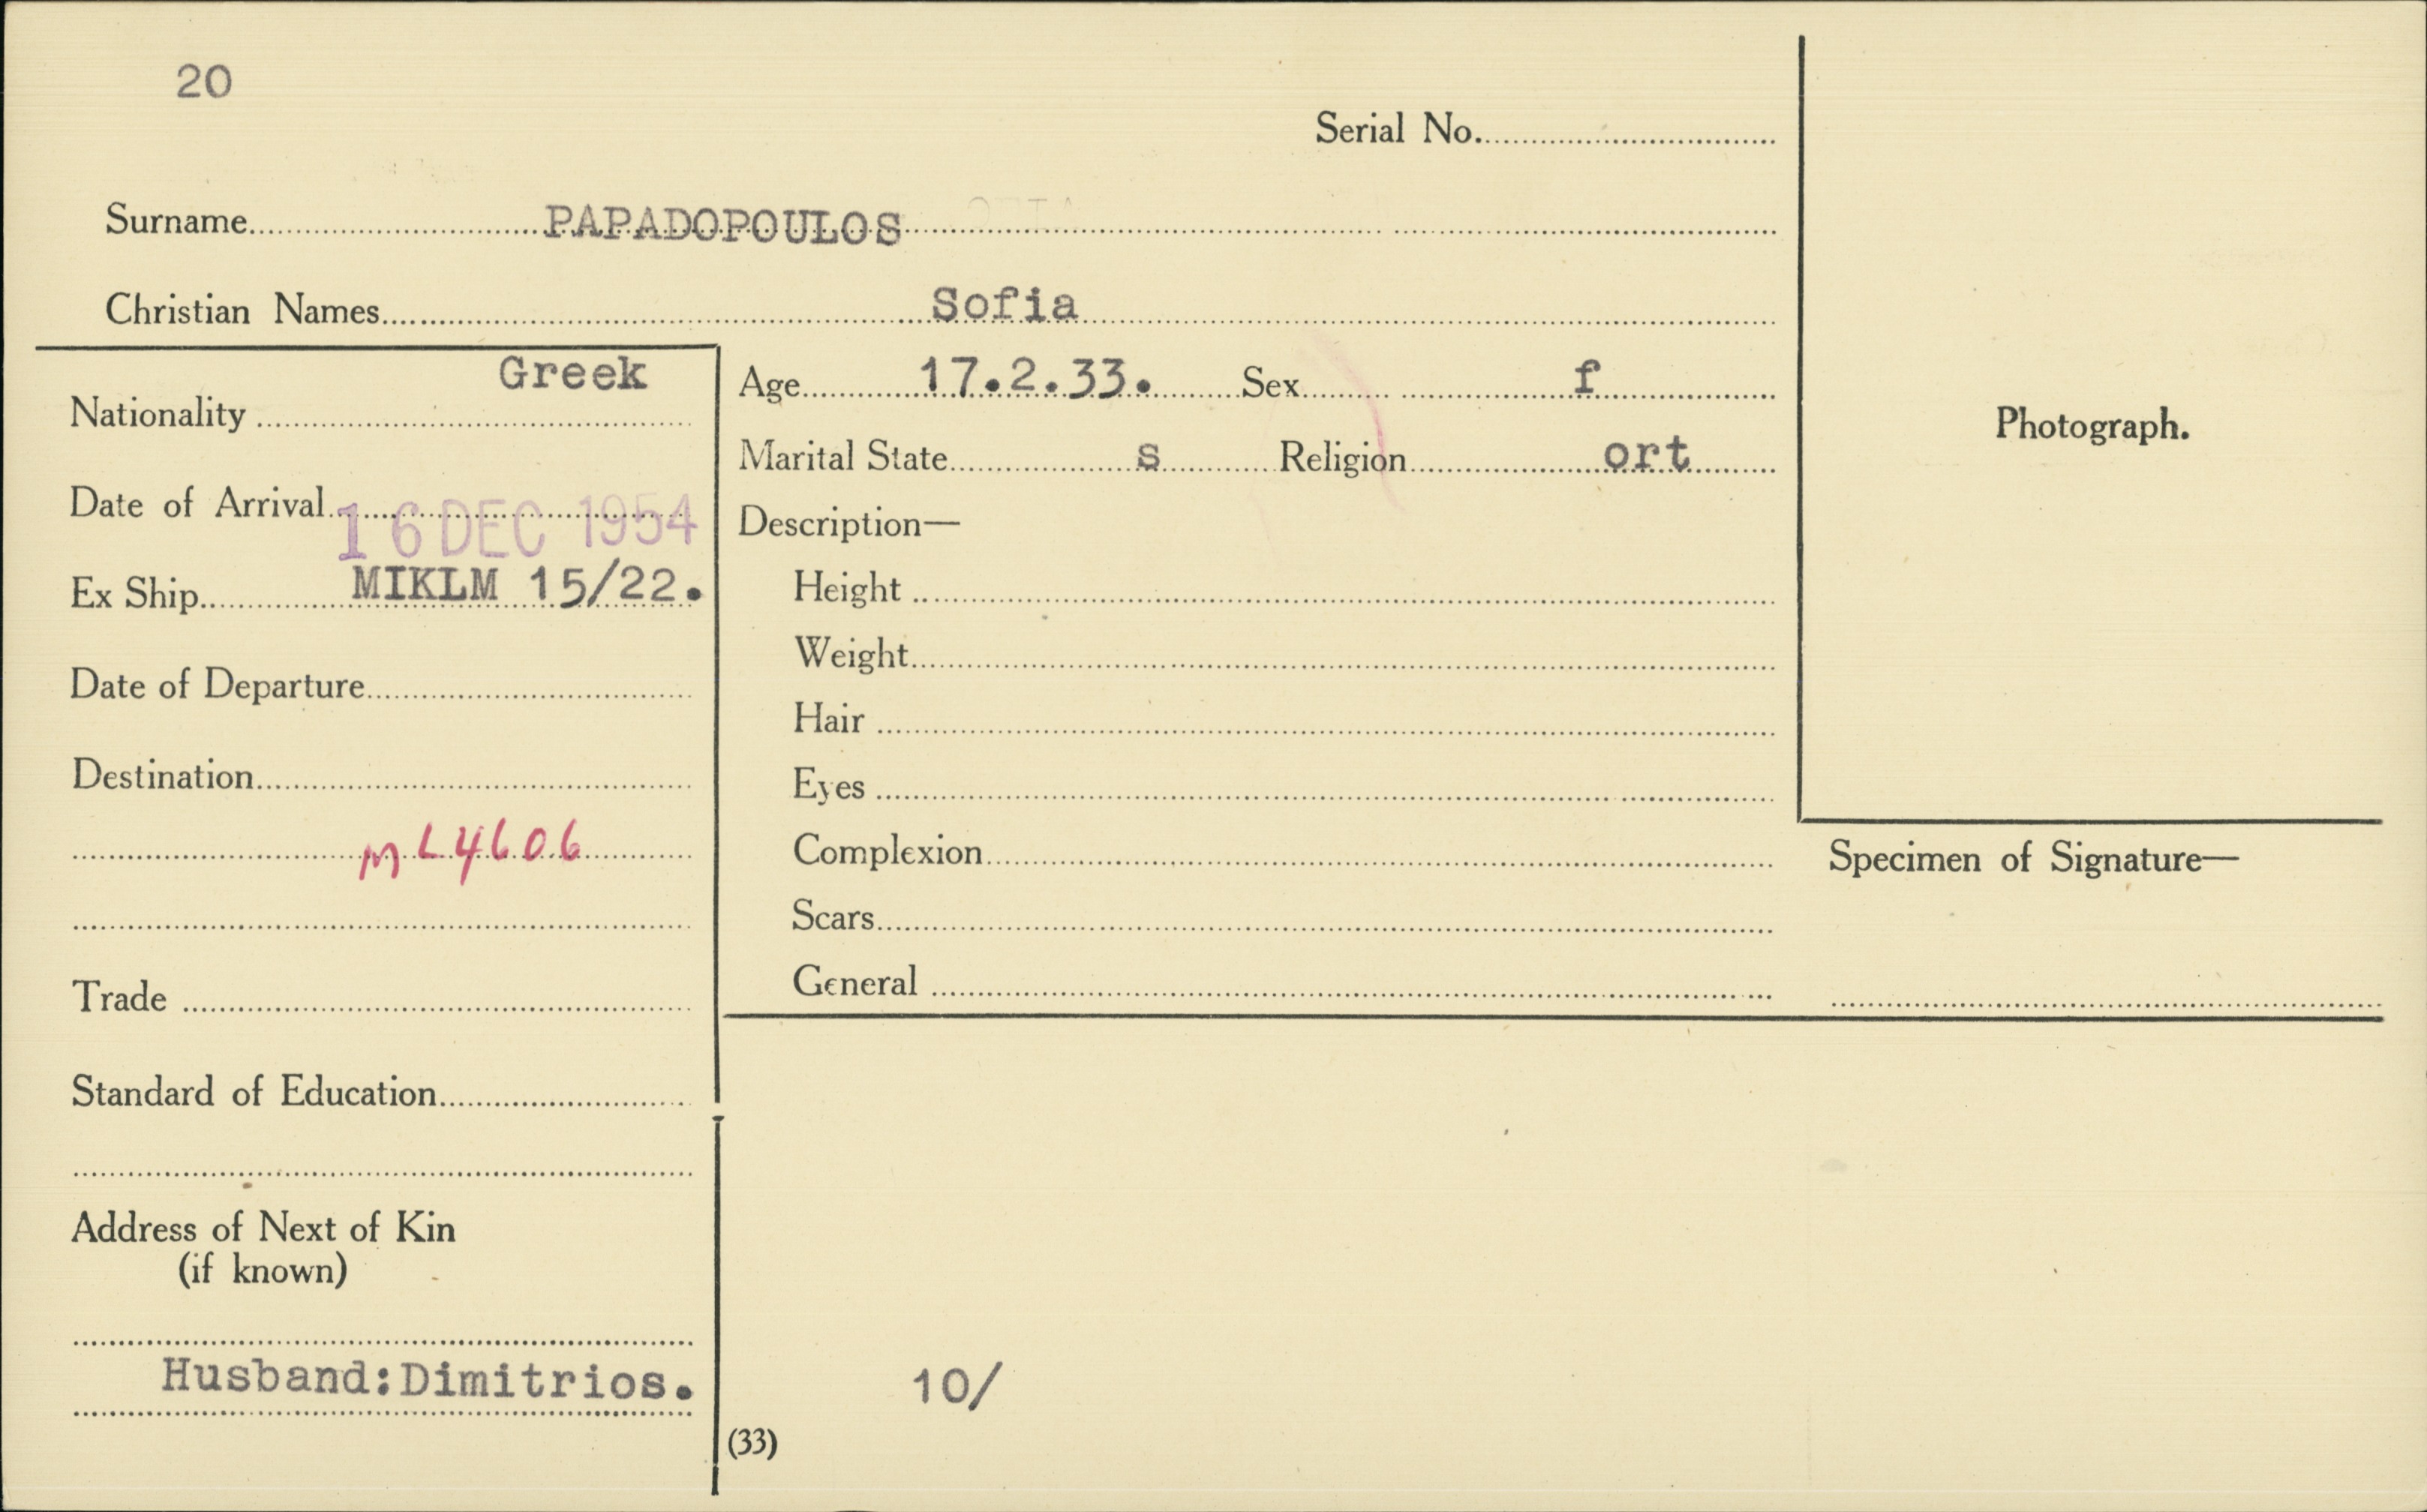 20
Serial No.
Surname PAPADOPOULOS
Christian Names Sofia
Nationality Greek
Date of Arrival 16 DEC 1954
Ex Ship MIKLM 15/22.
Date of Departure
Destination
ML4606
Trade
Standard of Education
Address of Next of Kin
(if known)
Husband:Dimitrios.
Age 17.2.33. Sex f
Marital State s Religion ort
Description—
Height
Weight
Hair
Eyes
Complexion
Scars
General
Photograph.
Specimen of Signature—
10/
(33)